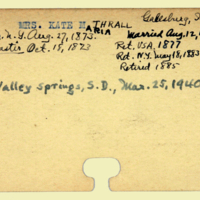 MRS. KATE MARIA THRALL
Galesburg,
N.Y. Aug. 27, 1873. Married Aug. 12,
Oct. 15, 1873 Ret. USA, 1877
Ret. N.Y. May 18, 1883
Retired 1885
Valley Springs, S.D., Mar. 25, 1940